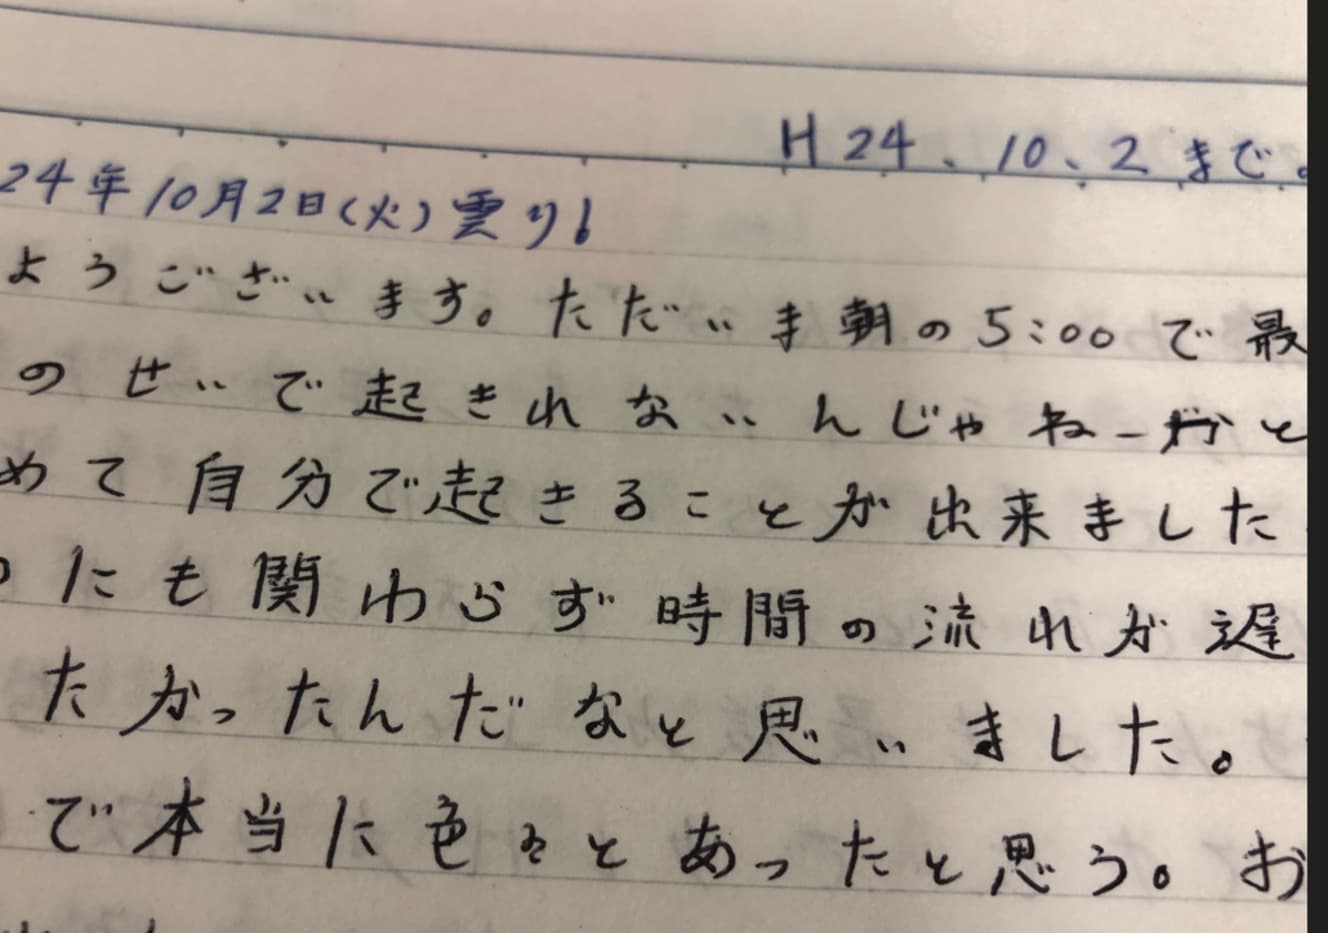 H24、10、2まで。
24年10月2日(火)雲り!
ようございます。ただいま朝の5:00で最
のせいで起きれないんじゃねーかと
めて自分で起きることが出来ました
にも関わらず時間の流れが遅
たかったんだなと思いました。
で本当に色々とあったと思う。お